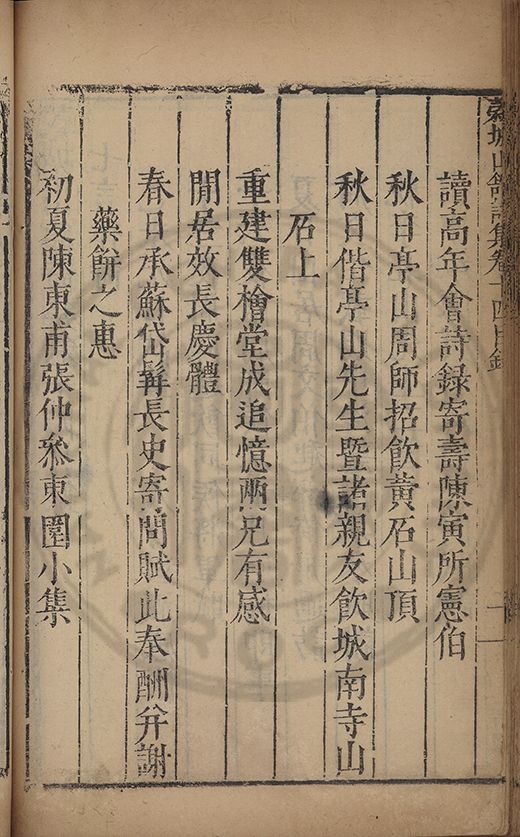 讀高年會詩錄寄壽陳寅所憲伯
秋日亭山周師招飲黃石山頂
秋日偕亭山先生暨諸親友飲城南寺山
石上
重建雙檜堂成追憶兩兄有感
閒居效長慶體
春日承蘇岱髯長史寄問賦此奉酬并謝
藥餅之惠
初夏陳東甫張仲叅東園小集